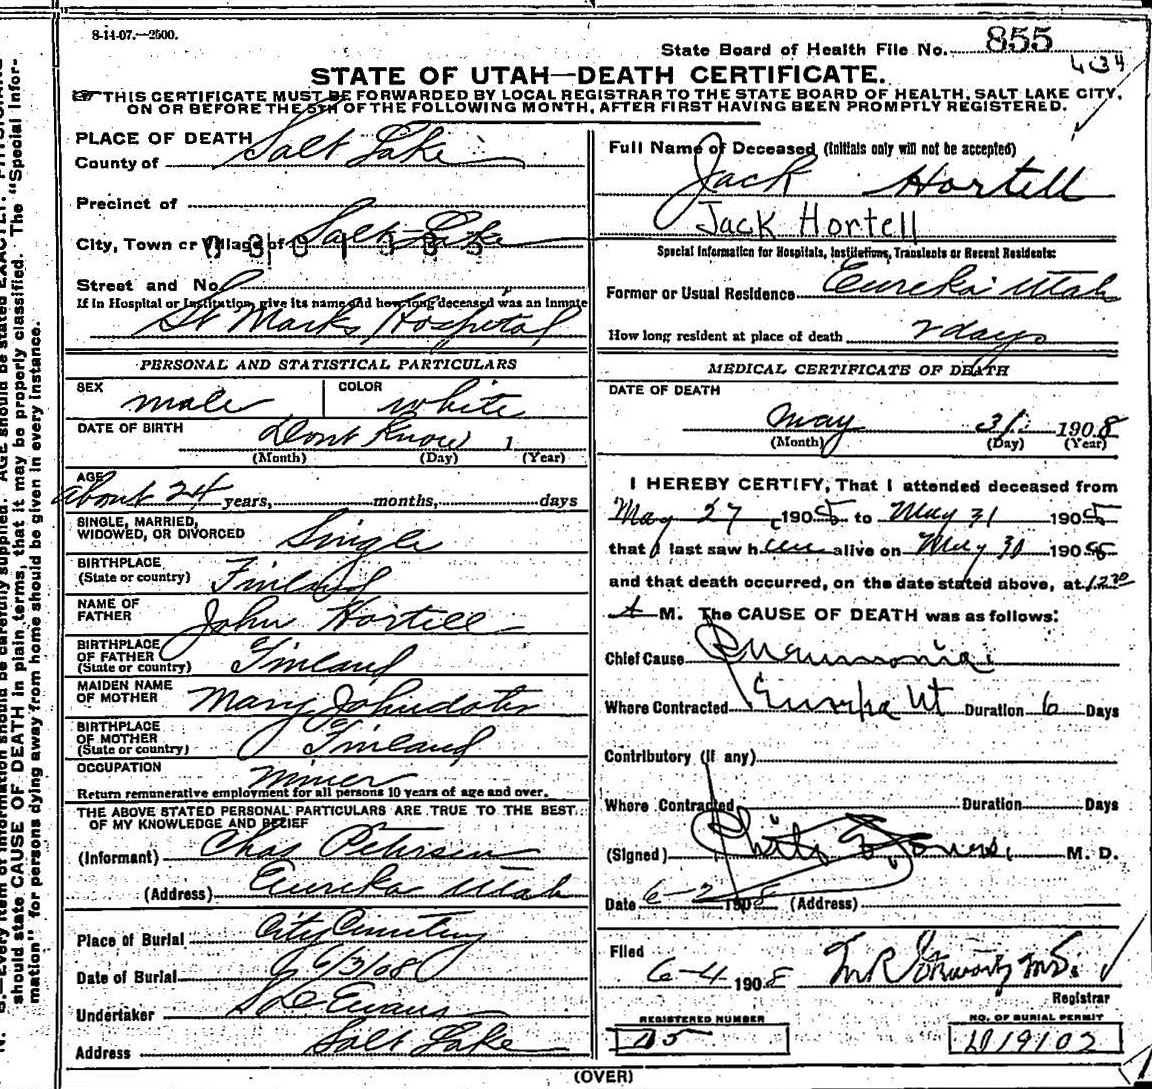 8-14-07.—2500.
State Board of Health File No. 855
434
STATE OF UTAH—DEATH CERTIFICATE.
THIS CERTIFICATE MUST BE FORWARDED BY LOCAL REGISTRAR TO THE STATE BOARD OF HEALTH, SALT LAKE CITY,
ON OR BEFORE THE 5TH OF THE FOLLOWING MONTH, AFTER FIRST HAVING BEEN PROMPTLY REGISTERED.
PLACE OF DEATH
County of Salt Lake
Precinct of
City, Town or Village of Salt Lake
Street and No.
If in Hospital or Institution, give its name and how long deceased was an inmate
St Marks Hospital
PERSONAL AND STATISTICAL PARTICULARS
SEX male COLOR white
DATE OF BIRTH Dont Know 1
(Month) (Day) (Year)
AGE
about 24 years, months, days
SINGLE, MARRIED,
WIDOWED, OR DIVORCED Single
BIRTHPLACE
(State or country) Finland
NAME OF
FATHER John Hortell
BIRTHPLACE
OF FATHER
(State or country) Finland
MAIDEN NAME
OF MOTHER Mary Johndoter
BIRTHPLACE
OF MOTHER
(State or country) Finland
OCCUPATION Miner
Return remunerative employment for all persons 10 years of age and over.
THE ABOVE STATED PERSONAL PARTICULARS ARE TRUE TO THE BEST
OF MY KNOWLEDGE AND BELIEF
(Informant) Chas Petersen
(Address) Eureka Utah
Place of Burial City Cemetery
Date of Burial 6/3/08
Undertaker Evans
Address Salt Lake
Full Name of Deceased (Initials only will not be accepted)
Jack Hortell
Jack Hortell
Special Information for Hospitals, Institutions, Transients or Recent Residents:
Former or Usual Residence Eureka Utah
How long resident at place of death 2 days
MEDICAL CERTIFICATE OF DEATH
DATE OF DEATH
May 31 1908
(Month) (Day) (Year)
I HEREBY CERTIFY, That I attended deceased from
May 27 190 to May 31 190
that I last saw h alive on May 30 190
and that death occurred, on the date stated above, at 12 30
A M. The CAUSE OF DEATH was as follows:
Chief Cause Pneumonia
Where Contracted Ut Duration 6 Days
Contributory (if any)
Where Contracted Duration Days
(Signed) Jones M. D.
Date 6-2 1908 (Address)
Filed
6-4 1908
Registrar
REGISTERED NUMBER
NO. OF BURIAL PERMIT
D19102
(OVER)
should state CAUSE OF DEATH in plain terms, that it may be properly classified. The "Special Infor-
mation" for persons dying away from home should be given in every instance.